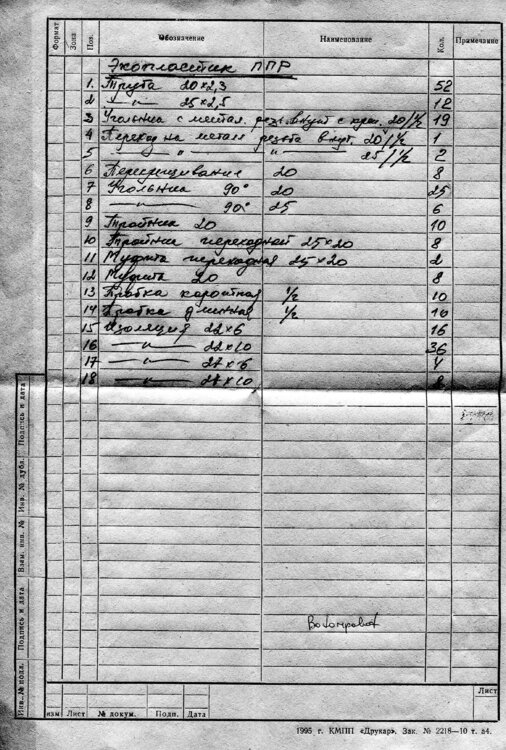 Формат Зона Поз. Обозначение Наименование Кол. Примечание
Экопластик ППР
1. Труба 20×2,3 52
2 —"— 25×2,5 12
3 Угольник с метал. резь. внут с креп. 20/½ 19
4 Переход на метал резьба внут. 20/½ 1
5 —"— —"— 25/½ 2
6 Перекрещивание 20 8
7 Угольник 90° 20 25
8 —"— 90° 25 6
9 Тройник 20 10
10 Тройник переходной 25×20 8
11 Муфта переходная 25×20 2
12 Муфта 20 8
13 Пробка короткая ½ 10
14 Пробка длинная ½ 10
15 Изоляция 22×6 16
16 —"— 22×10 36
17 —"— 28×6 4
18 —"— 28×10 8
Инв. № подл. Подпись и дата Взам. инв. № Инв. № дубл. Подпись и дата
Изм Лист № докум. Подп. Дата
Лист
1995 г. КМПП «Друкар». Зак. № 2218—10 т. д4.